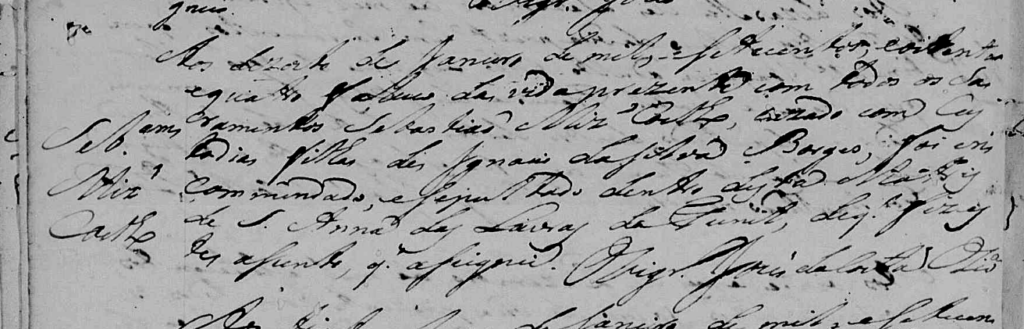 Aos dezoito de Janeiro de mil, e setecentos, e oitenta
e quatro faleceu da vida prezente com todos os Sa
Seb.am cramentos Sebastiaõ Miz' Coelho, cazado com Cus
todia filha de Ignacio da Silva Borges, foi en
Miz' commendado, e sepultado dentro desta Matriz
Coelho de S. Anna das Lavras do Funil, de q.' fiz es
te asento, q.' asignei. O Vigr.o
de Janeiro de mil, e setecen